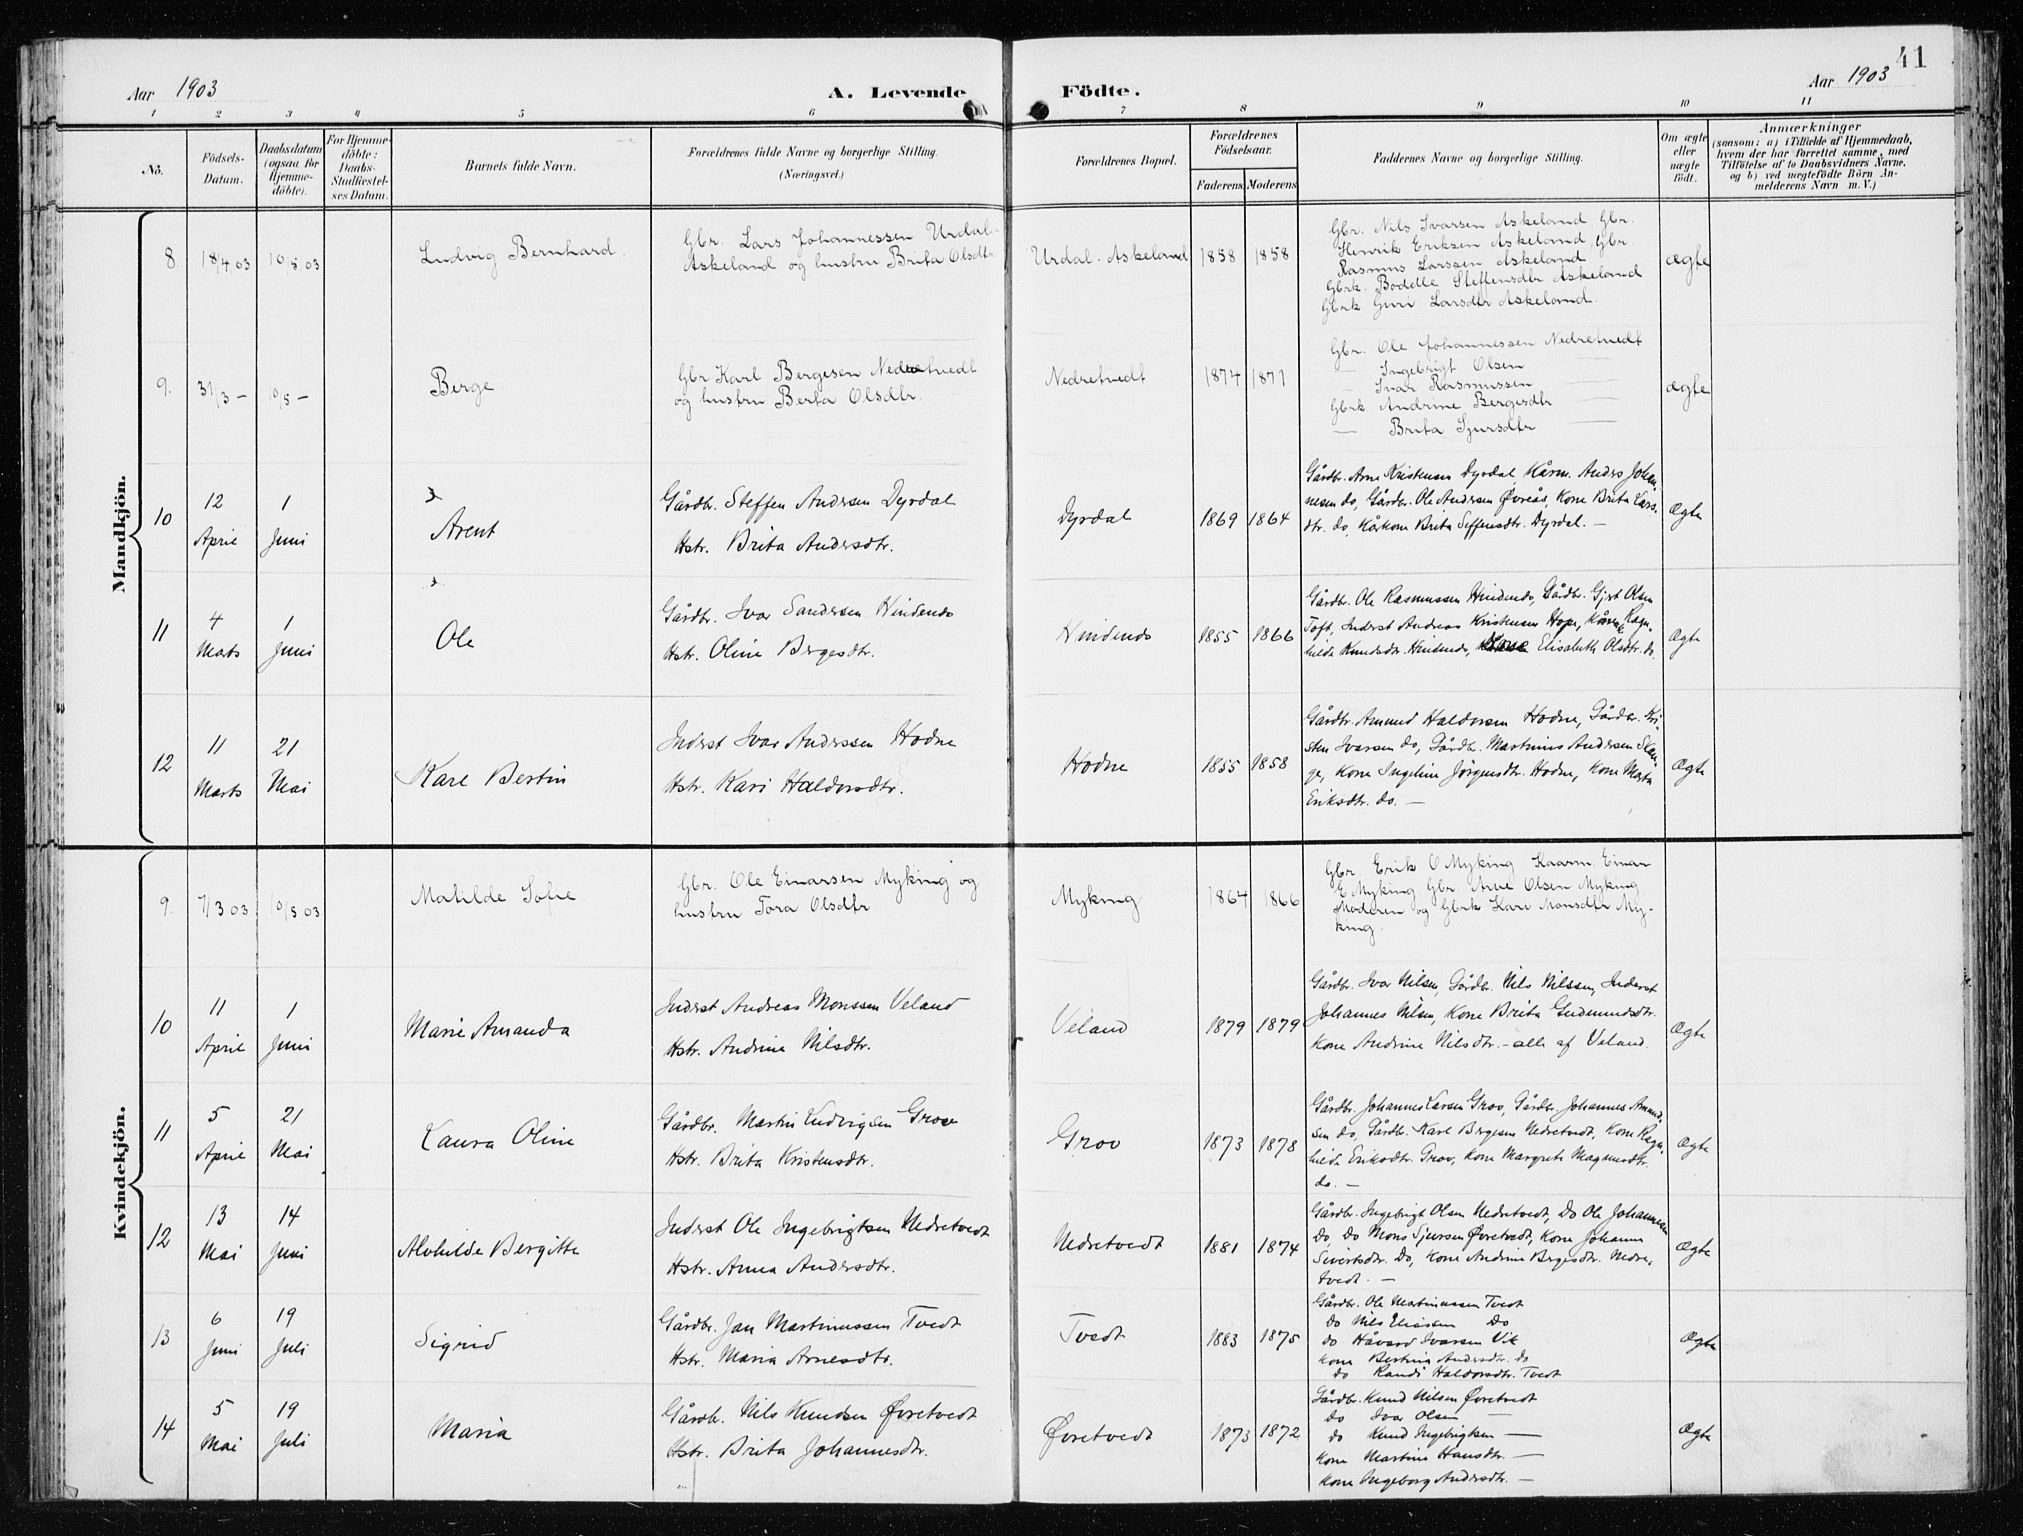 41
Aar 1903
A. Levende
Födte.
Aar 1903
1 2 3 4 5 6 7 8 9 10 11
No.
Födsels-
Datum.
Daabsdatum
(ogsaa for
Hjemme-
döbte).
For Hjemme-
döbte:
Daabs-
Stadfæstel-
ses Datum.
Barnets fulde Navn.
Forældrenes fulde Navne og borgerlige Stilling.
(Næringsvei.)
Forældrenes Bopæl.
Forældrenes
Födselsaar.
Faderens Moderens
Faddernes Navne og borgerlige Stilling.
Om ægte
eller
uægte
födt.
Anmærkninger
(saasom: a) i Tilfælde af Hjemmedaab,
hvem der har forrettet samme, med
Tilföielse af to Daabsvidners Navne.
og b) ved uægtefödte Börn An-
melderens Navn m. V.)
Mandkjön.
8. 18/4 03 10/5 03
Ludvig Bernhard.
Gbr. Lars Johannessen Urdal-
Askeland og hustru Brita Olsdtr
Urdal. Askeland 1858 1858
Gbr. Nils Ivarsen Askeland Gbr.
Henrik Eriksen Askeland, Gbr.
Rasmus Larssen Askeland
Gbrk. Bodelle Steffensdtr Askeland
Gbrk Guri Larsdtr Askeland.
ægte
9. 31/3 – 10/5 –
Berge
Gbr Karl Bergesen Nedretvedt
og hustru Berta Olsdtr.
Nedretvedt 1874 1871
Gbr. Ole Johannessen Nedretvedt
— Ingebrigt Olsen —
— Ivar Rasmussen —
Gbrk Andrine Bergesdtr —
— Brita Sjursdtr —
ægte
10 12 April 1 Juni
Arent
Gårdbr. Steffen Andersen Dyrdal
Hstr. Brita Andersdtr.
Dyrdal 1869 1864
Gårdbr. Arne Kristensen Dyrdal, Kårm. Anders Johan-
nesen do, Gårdbr. Ole Andersen Øvreås, Kone Brita Lars-
dtr. do, Kåkone Brita Seffensdtr. Dyrdal. —
Ægte
11 4 Mats 1 Juni
Ole
Gårdbr. Ivar Sandersen Hindenes
Hstr. Oline Bergesdtr.
Hindenes 1855 1866
Gårdbr. Ole Rasmussen Hindenes, Gårdbr. Gjert Olsen
Toft, Inderst Andreas Kristensen Hope, Kårenk. Ragn-
hilde Knudsdtr. Hindenes, Elisabeth Olsdtr. do.
Ægte
12 11 Marts 21 Mai
Karl Bertin
Inderst Ivar Anderssen Hodne
Hstr. Kari Haldorsdtr.
Hodne 1855 1858
Gårdbr. Amund Haldorsen Hodne, Gårdbr. Kri-
sten Ivarsen do, Gårdbr. Martinus Andersen Skau-
ge, Kone Ingeline Jørgensdtr. Hodne, Kone Marta
Eriksdtr. do. —
Ægte
Kvindekjön.
9. 7/3 03 10/5 03
Matilde Sofie
Gbr. Ole Einarsen Myking og
hustru Tora Olsdtr
Myking 1864 1866
Gbr. Erik O Myking Kaarm. Einar
E Myking Gbr. Arne Olsen Myking
Moderen og Gbrk Kari Monsdtr My-
king.
10 11 April 1 Juni
Marie Amanda
Inderst Andreas Monssen Veland
Hstr. Andrine Nilsdtr.
Veland 1879 1879
Gårdbr. Ivar Nilsen, Gårdbr. Nils Nilssen, Inderst
Johannes Nilsen, Kone Brita Gudmundsdtr.
Kone Andrine Nilsdtr. – alle af Veland.
Ægte
11 5 April 21 Mai
Laura Oline
Gårdbr. Martin Ludvigsen Grove
Hstr. Brita Kristensdtr.
Grov 1873 1878
Gårdbr. Johannes Larsen Grov, Gårdbr. Johannes Amund-
sen do, Gårdbr. Karl Bergesen Nedretvedt, Kone Ragn-
hilde Eriksdtr. Grov, Kone Margrete Magnusdtr.
do. —
Ægte
12 13 Mai 14 Juni
Alvhilde Bergitte
Inderst Ole Ingebrigtsen Nedretvedt
Hstr. Anna Andersdtr.
Nedretvedt 1881 1874
Gårdbr. Ingebrigt Olsen Nedretvedt, Do Ole Johannesen
Do, Do Mons Sjursen Øvretvedt, Kone Johanna
Sivertsdtr. Do, Kone Andrine Bergesdtr. Nedre-
tvedt. —
Ægte
13 6 Juni 19 Juli
Sigrid
Gårdbr. Jan Martinussen Tvedt
Hstr. Maria Arnesdtr.
Tvedt 1883 1875
Gårdbr. Ole Martinussen Tvedt
Do Nils Eliassen Do
do Håvard Ivarsen Vik
kone Bertina Andersdtr. do
do Randi Haldorsdtr. Tvedt
Ægte
14 5 Mai 19 Juli
Maria
Gårdbr. Nils Knudsen Øvretvedt
Hstr. Brita Johannesdtr.
Øvretvedt 1873 1872
Gårdbr. Knud Nilsen Øvretvedt
do Ivar Olsen —
do Knud Ingebrigtsen —
Kone Martina Hansdtr. —
Kone Ingeborg Andersdtr. —
Ægte